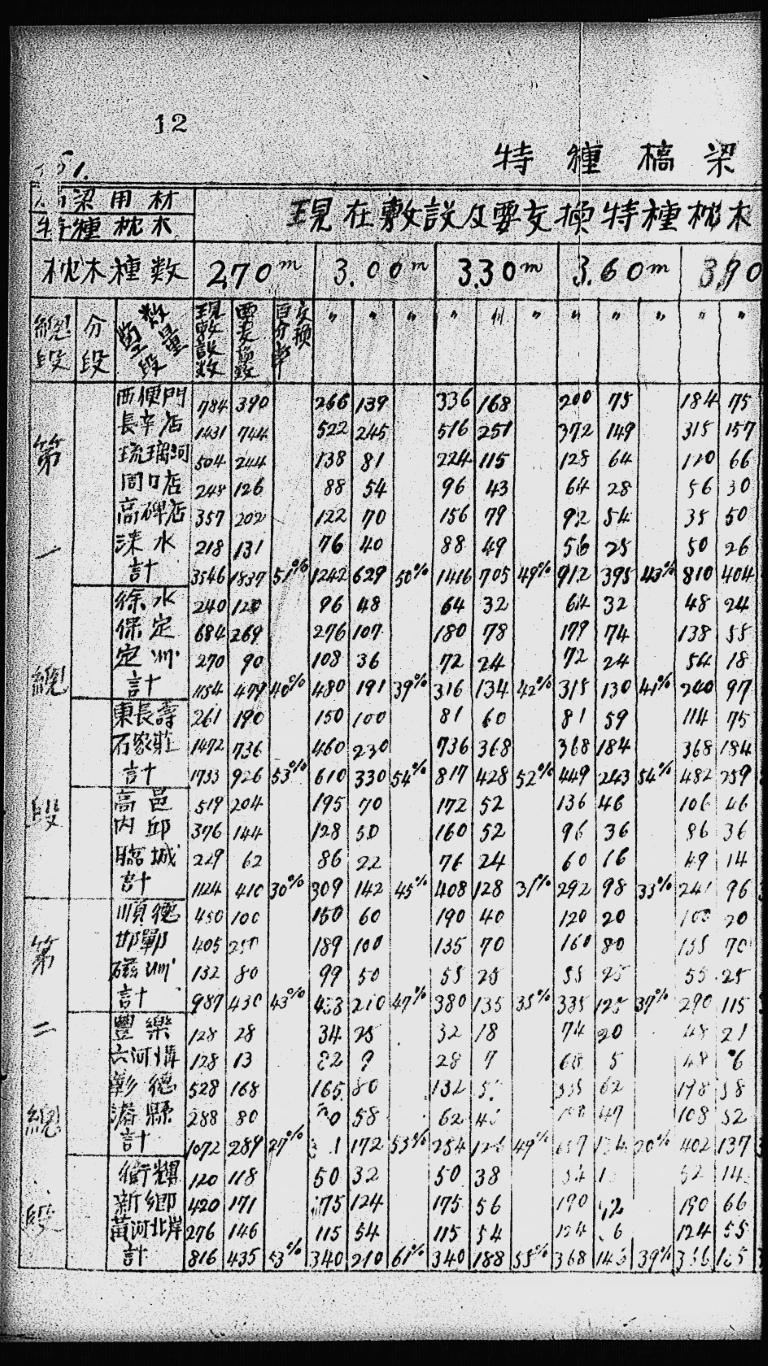 12
特種橋梁
1.
梁用材
特種枕木
現在敷設及要交換特種枕木
枕木種數 270m 3.00m 3.30m 3.60m 3.90
總段 分段 數量 段 現敷設數 百分率 交換 〃 〃 〃 〃 〃 〃 〃 〃 〃 〃 〃
第一總段
西便門 784 390 266 139 336 168 200 75 184 75
長辛店 1431 744 522 245 516 251 372 149 315 157
琉璃河 504 244 138 81 224 115 128 64 120 66
周口店 248 126 88 54 96 43 64 28 56 30
高碑店 357 202 122 70 156 79 92 54 35 50
淶水 218 131 76 40 88 49 56 25 50 26
計 3546 1837 51% 1242 629 50% 1416 705 49% 912 395 43% 810 404
徐水 240 120 96 48 64 32 64 32 48 24
保定 684 269 276 107 180 78 179 74 138 55
定州 270 90 108 36 72 24 72 24 54 18
計 479 40% 480 191 39% 316 134 42% 315 130 41% 240 97
東長壽 261 190 150 100 81 60 81 59 114 75
石家莊 1472 736 460 230 736 368 368 184 368 184
計 1733 926 53% 610 330 54% 817 428 52% 449 243 54% 482 259
高邑 519 204 195 70 172 52 136 46 106 46
內邱 376 144 128 50 160 52 96 36 86 36
臨城 229 62 86 22 76 24 60 16 49 14
計 1124 410 30% 309 142 45% 408 128 31% 292 98 33% 241 96
第二總段
順德 450 100 150 60 190 40 120 20 100 20
邯鄲 405 250 189 100 135 70 160 80 135 70
磁州 132 80 99 50 55 25 55 25 55 25
計 987 430 43% 438 210 47% 380 135 35% 335 125 37% 290 115
豐樂 128 28 34 25 32 18 74 20 48 21
六河溝 128 13 9 28 7 5 48 6
彰德 528 168 165 80 132 62 198 58
濬縣 288 80 58 62 47 108 52
計 1072 289 27% 172 53% 254 49% 20% 402 137
衛輝 120 118 50 32 50 38 52 14
新鄉 420 171 175 124 175 56 190 190 66
黃河北岸 276 146 115 54 115 54 124 124 55
計 816 435 53% 340 210 61% 340 188 55% 368 39% 366